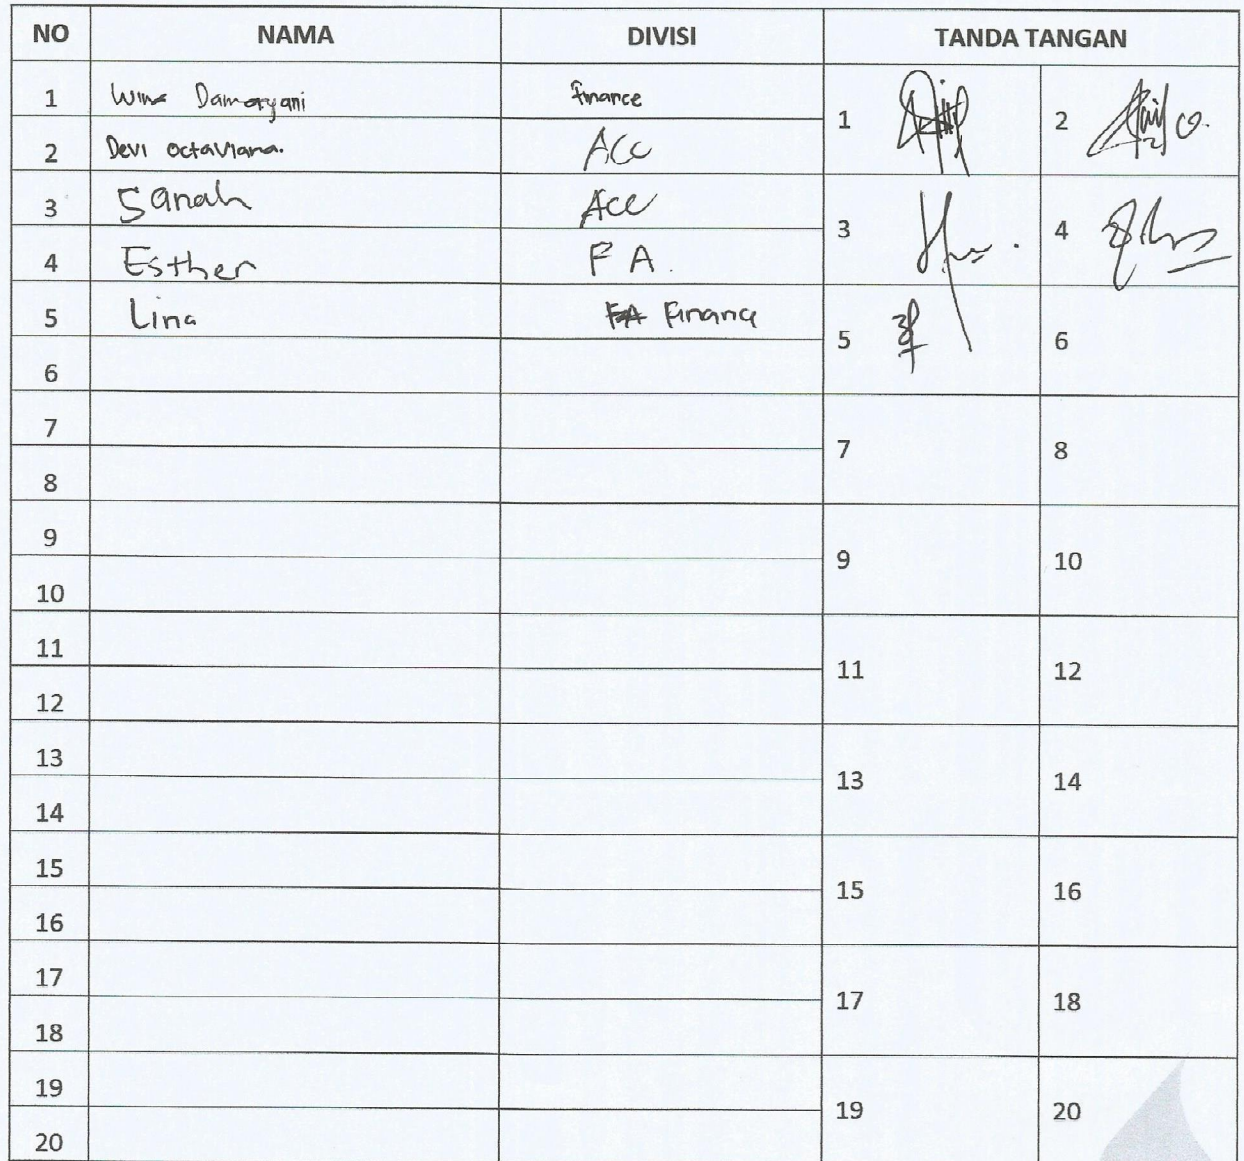 NO NAMA DIVISI TANDA TANGAN
1 Wina Damaryani finance 1 2
2 Devi Octaviana. ACC
3 Sanah ACC 3 4
4 Esther F A.
5 Lina FA Finance 5 6
6
7 7 8
8
9 9 10
10
11 11 12
12
13 13 14
14
15 15 16
16
17 17 18
18
19 19 20
20